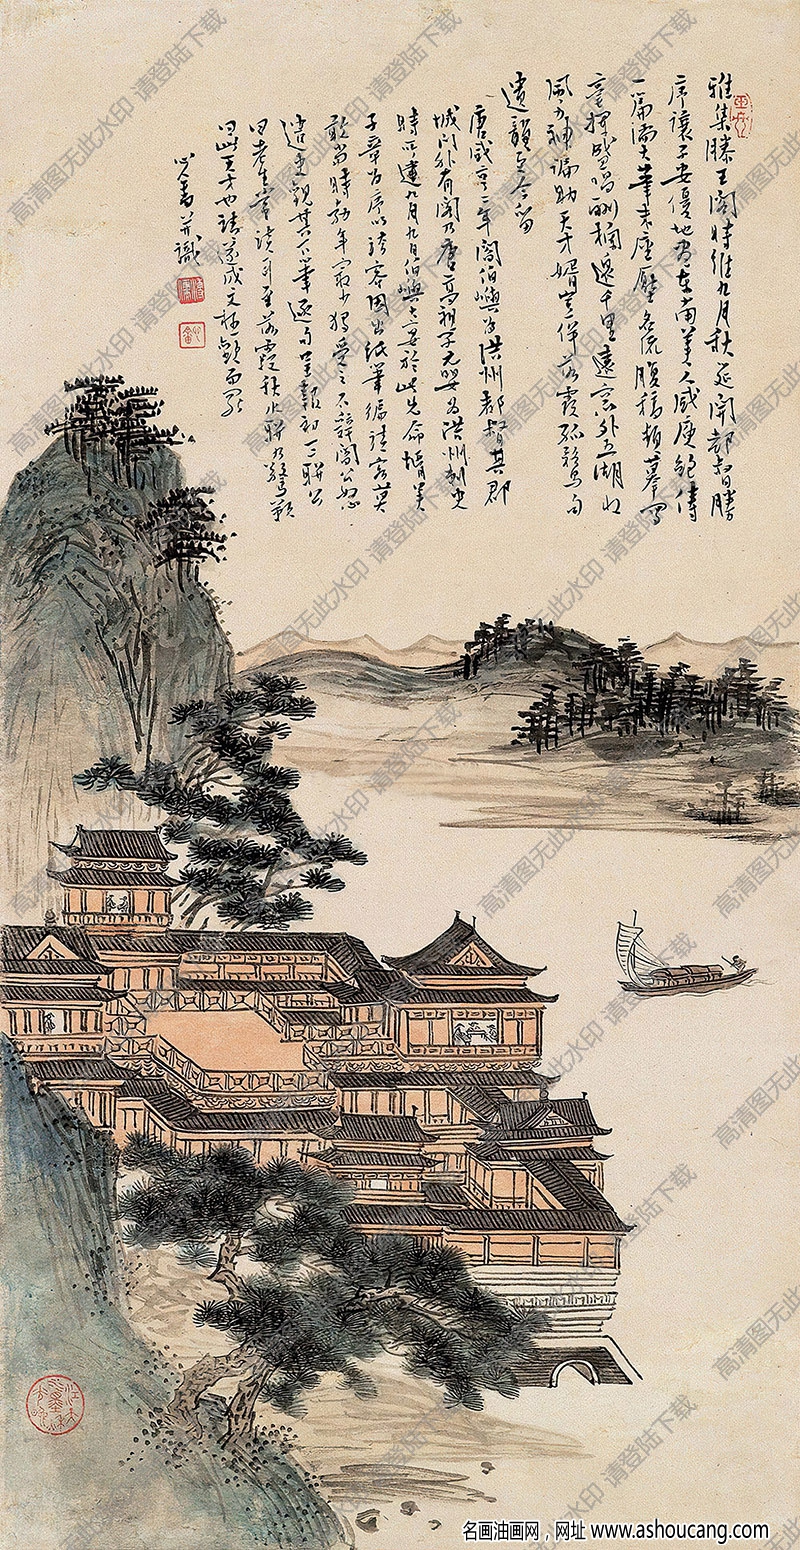 雅集滕王阁时维九月秋延开都督胜
序让子安优地尽东南美人咸座绝倚
一篇满大笔未座压名流腹稿频摹写
毫挥成唱酬楠边千里远意外五湖收
风力神偏助天才婿岂俦落霞孤鹜句
遗韵至今留
唐咸亨二年阎伯屿为洪州都督其郡
城门外有阁乃唐高祖子元婴为洪州刺史
时所建九月九日伯屿大宴於此先命婿吴
子章为序以誇客因出纸笔徧请客莫
敢当时勃年最少独受之不辞阎公怒
遣吏观其下笔逐句呈报初一二联公
曰老生常谈耳至落霞秋水联乃惊歎
曰此天才也请遂成文极欢而罢
心畬并识
高清图无此水印 请登陆下载
名画油画网，网址 www.ashoucang.com